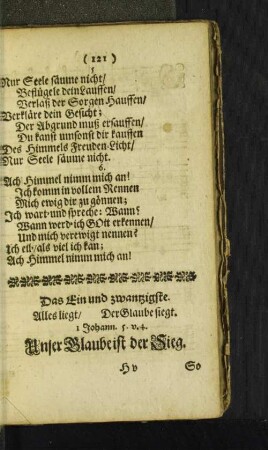 ( 121 )
Nur Seele säume nicht/
Beflügele dein Lauffen/
Verlaß der Sorgen Hauffen/
Verkläre dein Gesicht;
Der Abgrund muß ersauffen/
Du kanst umsonst dir kauffen
Des Himmels Freuden-Licht/
Nur Seele säume nicht.
6.
Ach Himmel nimm mich an!
Ich komm in vollem Rennen
Mich ewig dir zu gönnen;
Ich wart und spreche: Wann?
Wann werd ich GOtt erkennen/
Und mich verewigt nennen?
Ich eil/ als viel ich kan;
Ach Himmel nimm mich an!
Das Ein und zwantzigste.
Alles liegt/ Der Glaube siegt.
1 Johann. 5. v. 4.
Unser Glaube ist der Sieg.
H v So